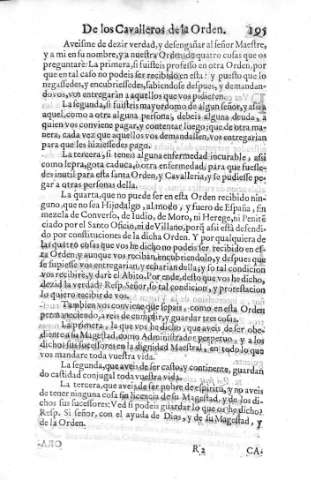 De los Cavalleros de la Orden. 195
Aveisme de dezir verdad, y desengañar al señor Maestre,
y a mi en su nombre, y a nuestra Orden de quatro cosas que os
preguntarè: La primera, si fuisteis professo en otra Orden, por
que en tal caso no podeis ser recibido en esta: y puesto que lo
negassedes, y encubriessedes, sabiendose despues, y demandan-
dovos, vos entregarán a aquellos que vos pidieren.
La segunda, si fuisteis mayordomo de algun señor, y assi a
aquel, como a otra alguna persona, debeis alguna deuda, a
quien vos conviene pagar, y contentar luego; que de otra ma-
nera, cada vez que aquellos vos demandassen, vos entregarian
para que les hiziessedes pago.
La tercera, si teneis alguna enfermedad incurable, assi
como lepra, gota caduca, ò otra enfermedad, para que fuesse-
des inutil para esta santa Orden, y Cavalleria, y se pudiesse pe-
gar a otras personas della.
La quarta, que no puede ser en esta Orden recibido nin-
guno, que no sea Hijodalgo, al modo, y fuero de España, sin
mezcla de Converso, de Iudio, de Moro, ni Herege, ni Penitē
ciado por el Santo Oficio, ni de Villano, porq̃ assi està defendi-
do por constituciones de la dicha Orden. Y por qualquiera de
las quatro cosas que vos he dicho no podeis ser recibido en es-
ta Orden, y aunque vos reciban, encubriendolo, y despues que
se supiesse vos entregarian, y echarian della; y so tal condicion
vos recibirè, y darè el Abito. Por ende, desto que vos he dicho,
dezid la verdad? Resp. Señor, so tal condicion, y protestacion
lo quiero recibir de vos.
Tambien vos conviene que sepais, como en esta Orden
permaneciendo, aveis de cumplir, y guardar tres cosas.
La primera, la que vos he dicho, que aveis de ser obe-
diente a su Magestad, como Administrador perpetuo, y a los
dichos sus sucessores en la dignidad Maestral, en todo lo que
vos mandare toda vuestra vida.
La segunda, que aveis de ser casto, y continente, guardan
do castidad conjugal toda vuestra vida.
La tercera, que aveis de ser pobre de espiritu, y no aveis
de tener ninguna cosa sin licencia de su Magestad, y de los di-
chos sus sucessores: Ved si podeis guardar lo que os he dicho?
Resp. Si señor, con el ayuda de Dios, y de su Magestad, y
de la Orden.
R2 CA-